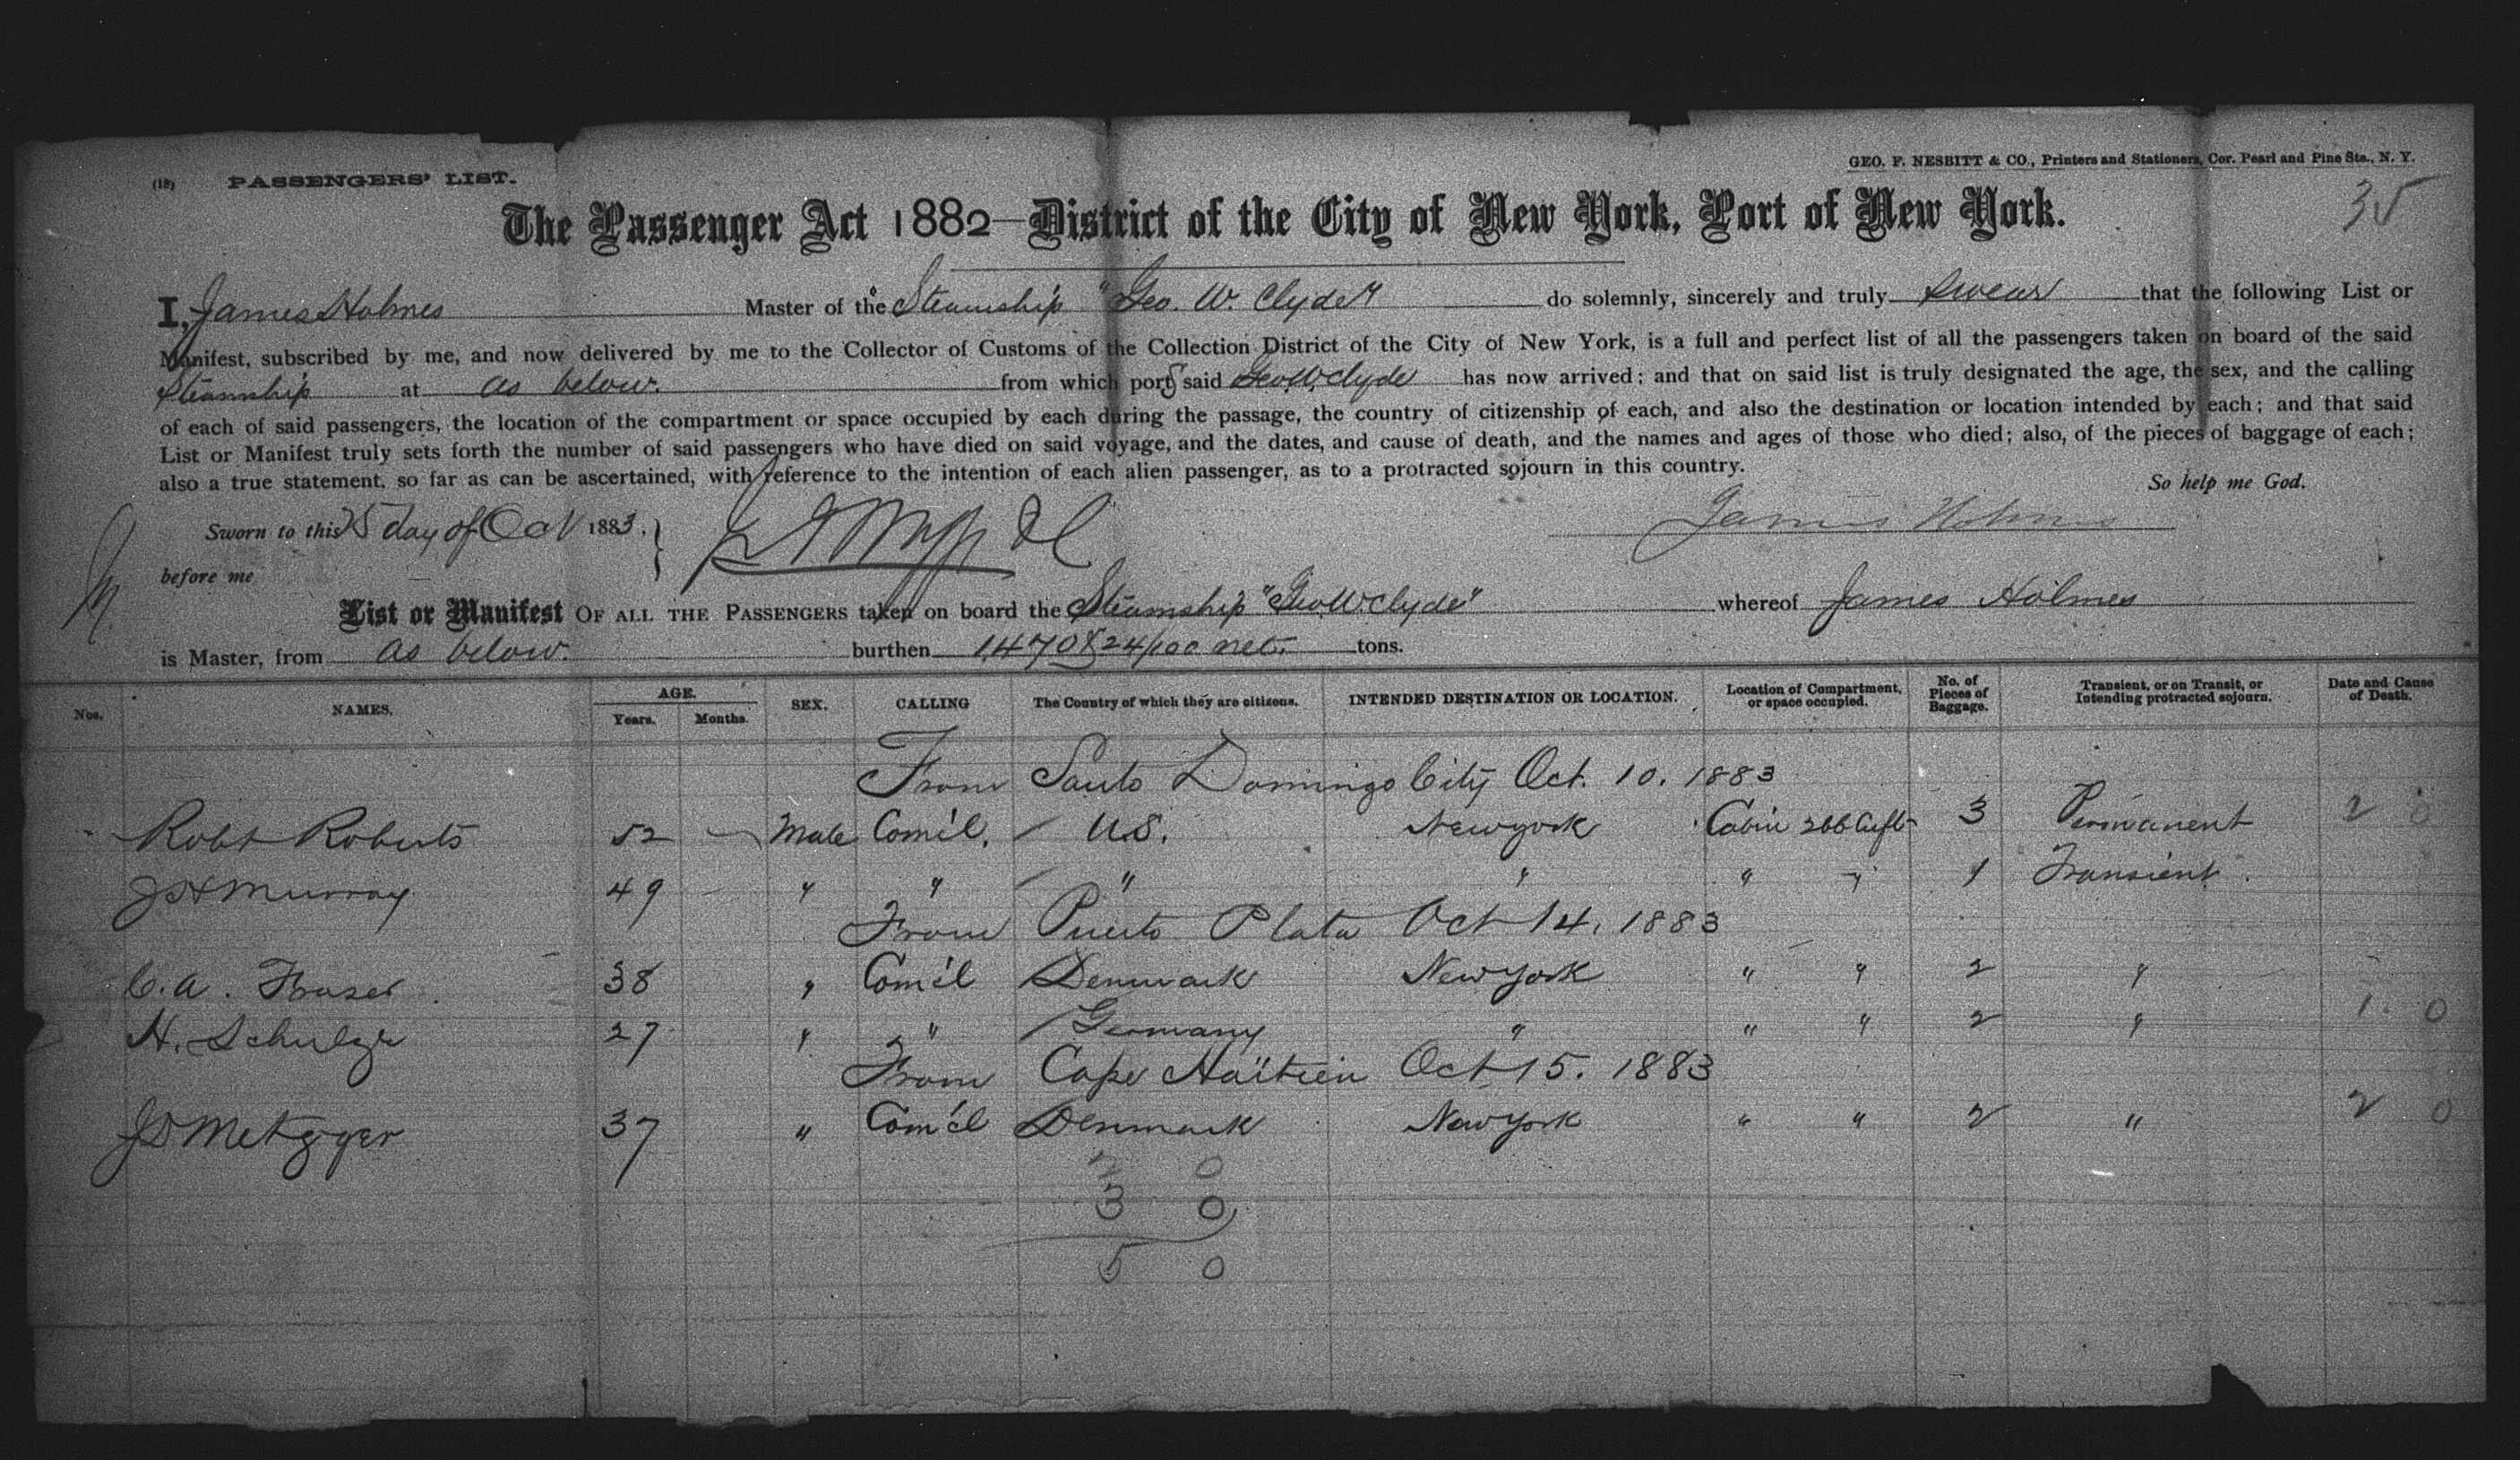 GEO. F. NESBITT & CO., Printers and Stationers, Cor. Pearl and Pine Sts., N. Y.
(18) PASSENGERS' LIST.
35
The Passenger Act 1882—District of the City of New York, Port of New York.
I, James Holmes Master of the Steamship "Geo. W. Clyde" do solemnly, sincerely and truly swear that the following List or
Manifest, subscribed by me, and now delivered by me to the Collector of Customs of the Collection District of the City of New York, is a full and perfect list of all the passengers taken on board of the said
Steamship at as below. from which ports said Geo W. Clyde has now arrived; and that on said list is truly designated the age, the sex, and the calling
of each of said passengers, the location of the compartment or space occupied by each during the passage, the country of citizenship of each, and also the destination or location intended by each; and that said
List or Manifest truly sets forth the number of said passengers who have died on said voyage, and the dates, and cause of death, and the names and ages of those who died; also, of the pieces of baggage of each;
also a true statement, so far as can be ascertained, with reference to the intention of each alien passenger, as to a protracted sojourn in this country.
So help me God.
Sworn to this 25 day of Oct 1883.
James Holmes
before me
List or Manifest OF ALL THE PASSENGERS taken on board the Steamship "Geo W. Clyde" whereof James Holmes
is Master, from as below. burthen 1470 & 24/100 net. tons.
Nos. NAMES. AGE. Years. Months. SEX. CALLING The Country of which they are citizens. INTENDED DESTINATION OR LOCATION. Location of Compartment, or space occupied. No. of Pieces of Baggage. Transient, or on Transit, or Intending protracted sojourn. Date and Cause of Death.
From Santo Domingo City Oct. 10. 1883
Robt Roberts 52 Male Com'l. U.S. New york Cabin 266 Cuft 3 Permanent 2 0
J H Murray 49 " " " " " " 1 Transient.
From Puerto Plata Oct 14. 1883
C. A. Fraser 38 " Com'l Denmark New York " " 2 "
H. Schulze 27 " " Germany " " " 2 " 1. 0
From Cape Haïtien Oct 15. 1883
J D Metzger 37 " Com'l Denmark New York " " 2 " 2 0
2 0
3 0
5 0